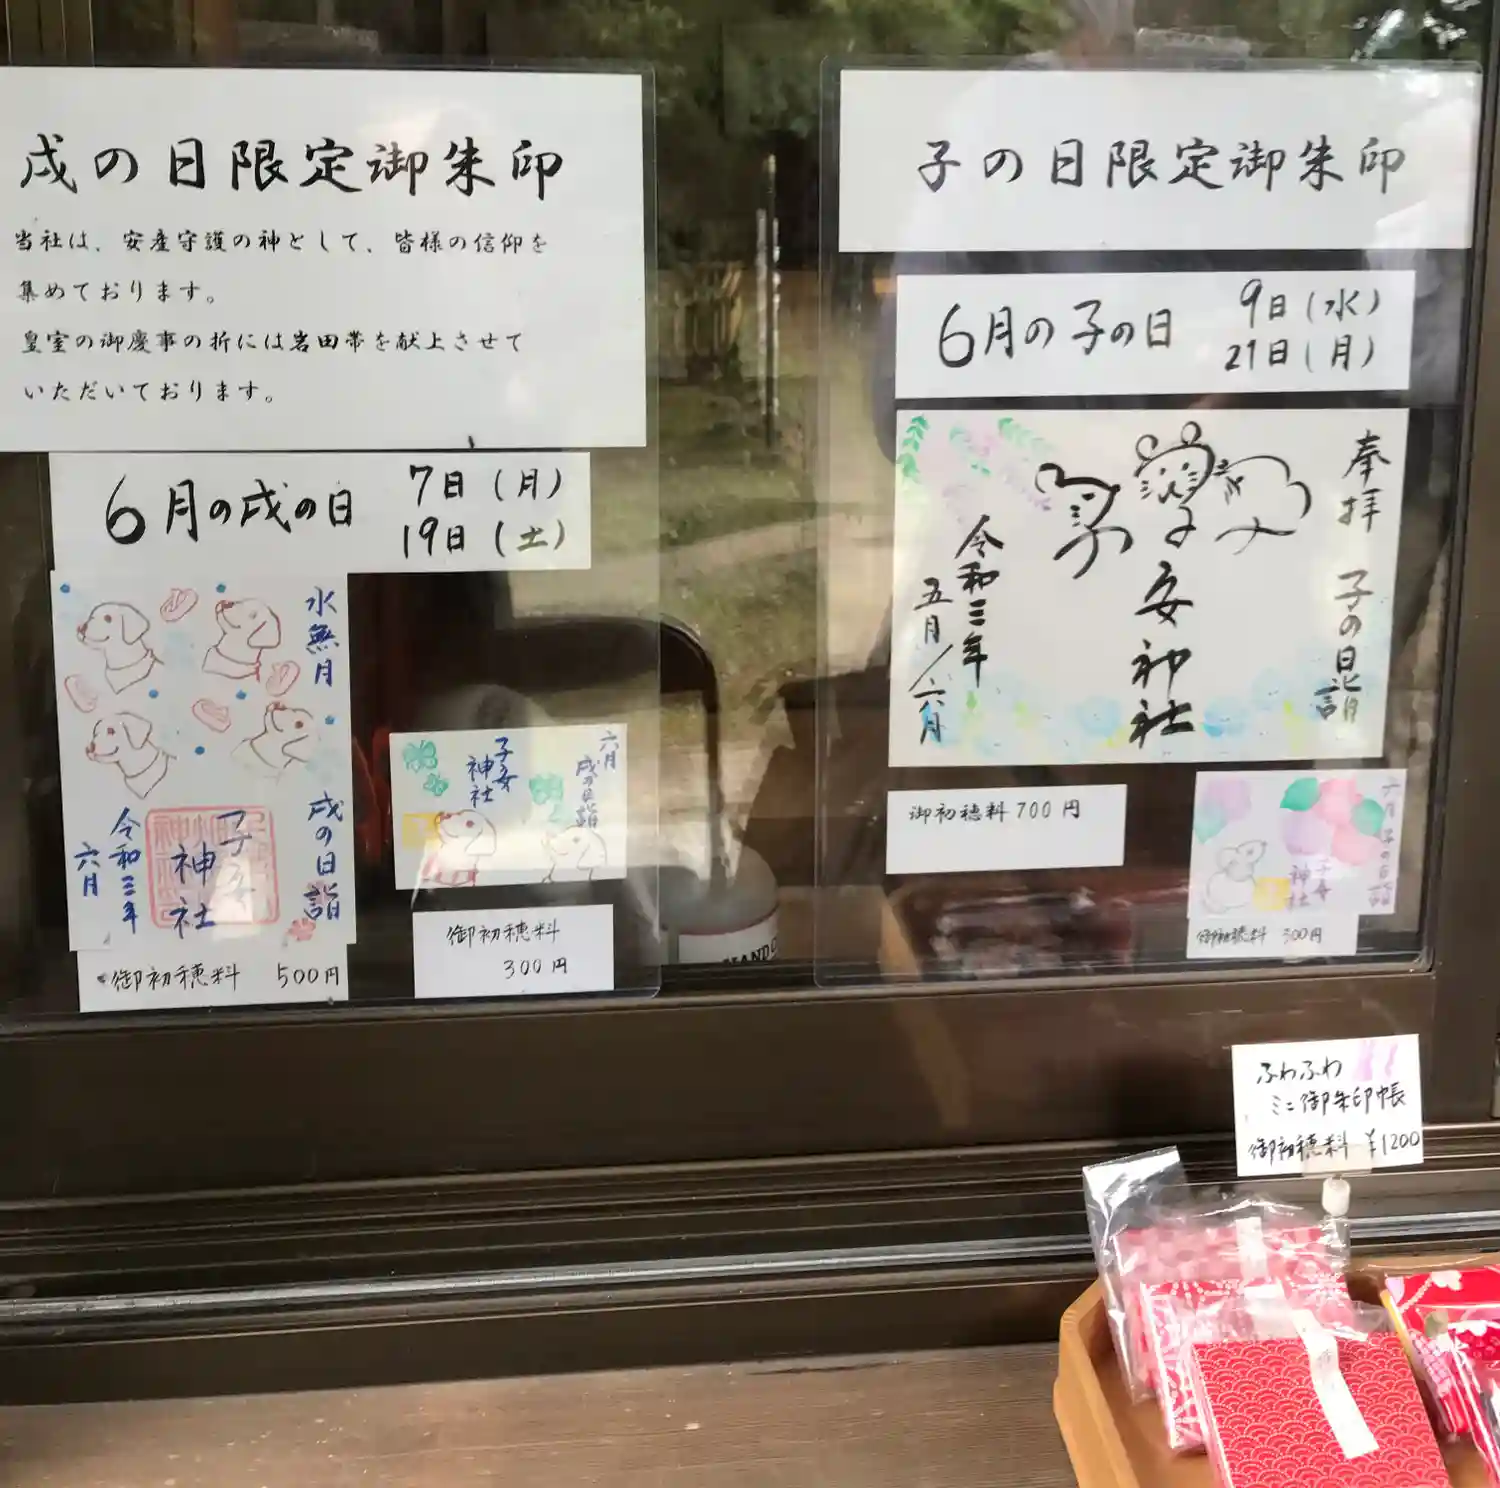 戌の日限定御朱印
当社は、安産守護の神として、皆様の信仰を
集めております。
皇室の御慶事の折には岩田帯を献上させて
いただいております。
6月の戌の日
7日(月)
19日(土)
水無月
戌の日詣
子安
神社
令和三年
六月
御初穂料 500円
六月
戌の日詣
子安
神社
御初穂料
300円
子の日限定御朱印
6月の子の日
9日(水)
21日(月)
奉拝 子の日詣
子安神社
令和三年
五月/六月
御初穂料700円
六月 子の日詣
子安
神社
御初穂料 300円
ふわふわ
ミニ御朱印帳
御初穂料 ¥1200